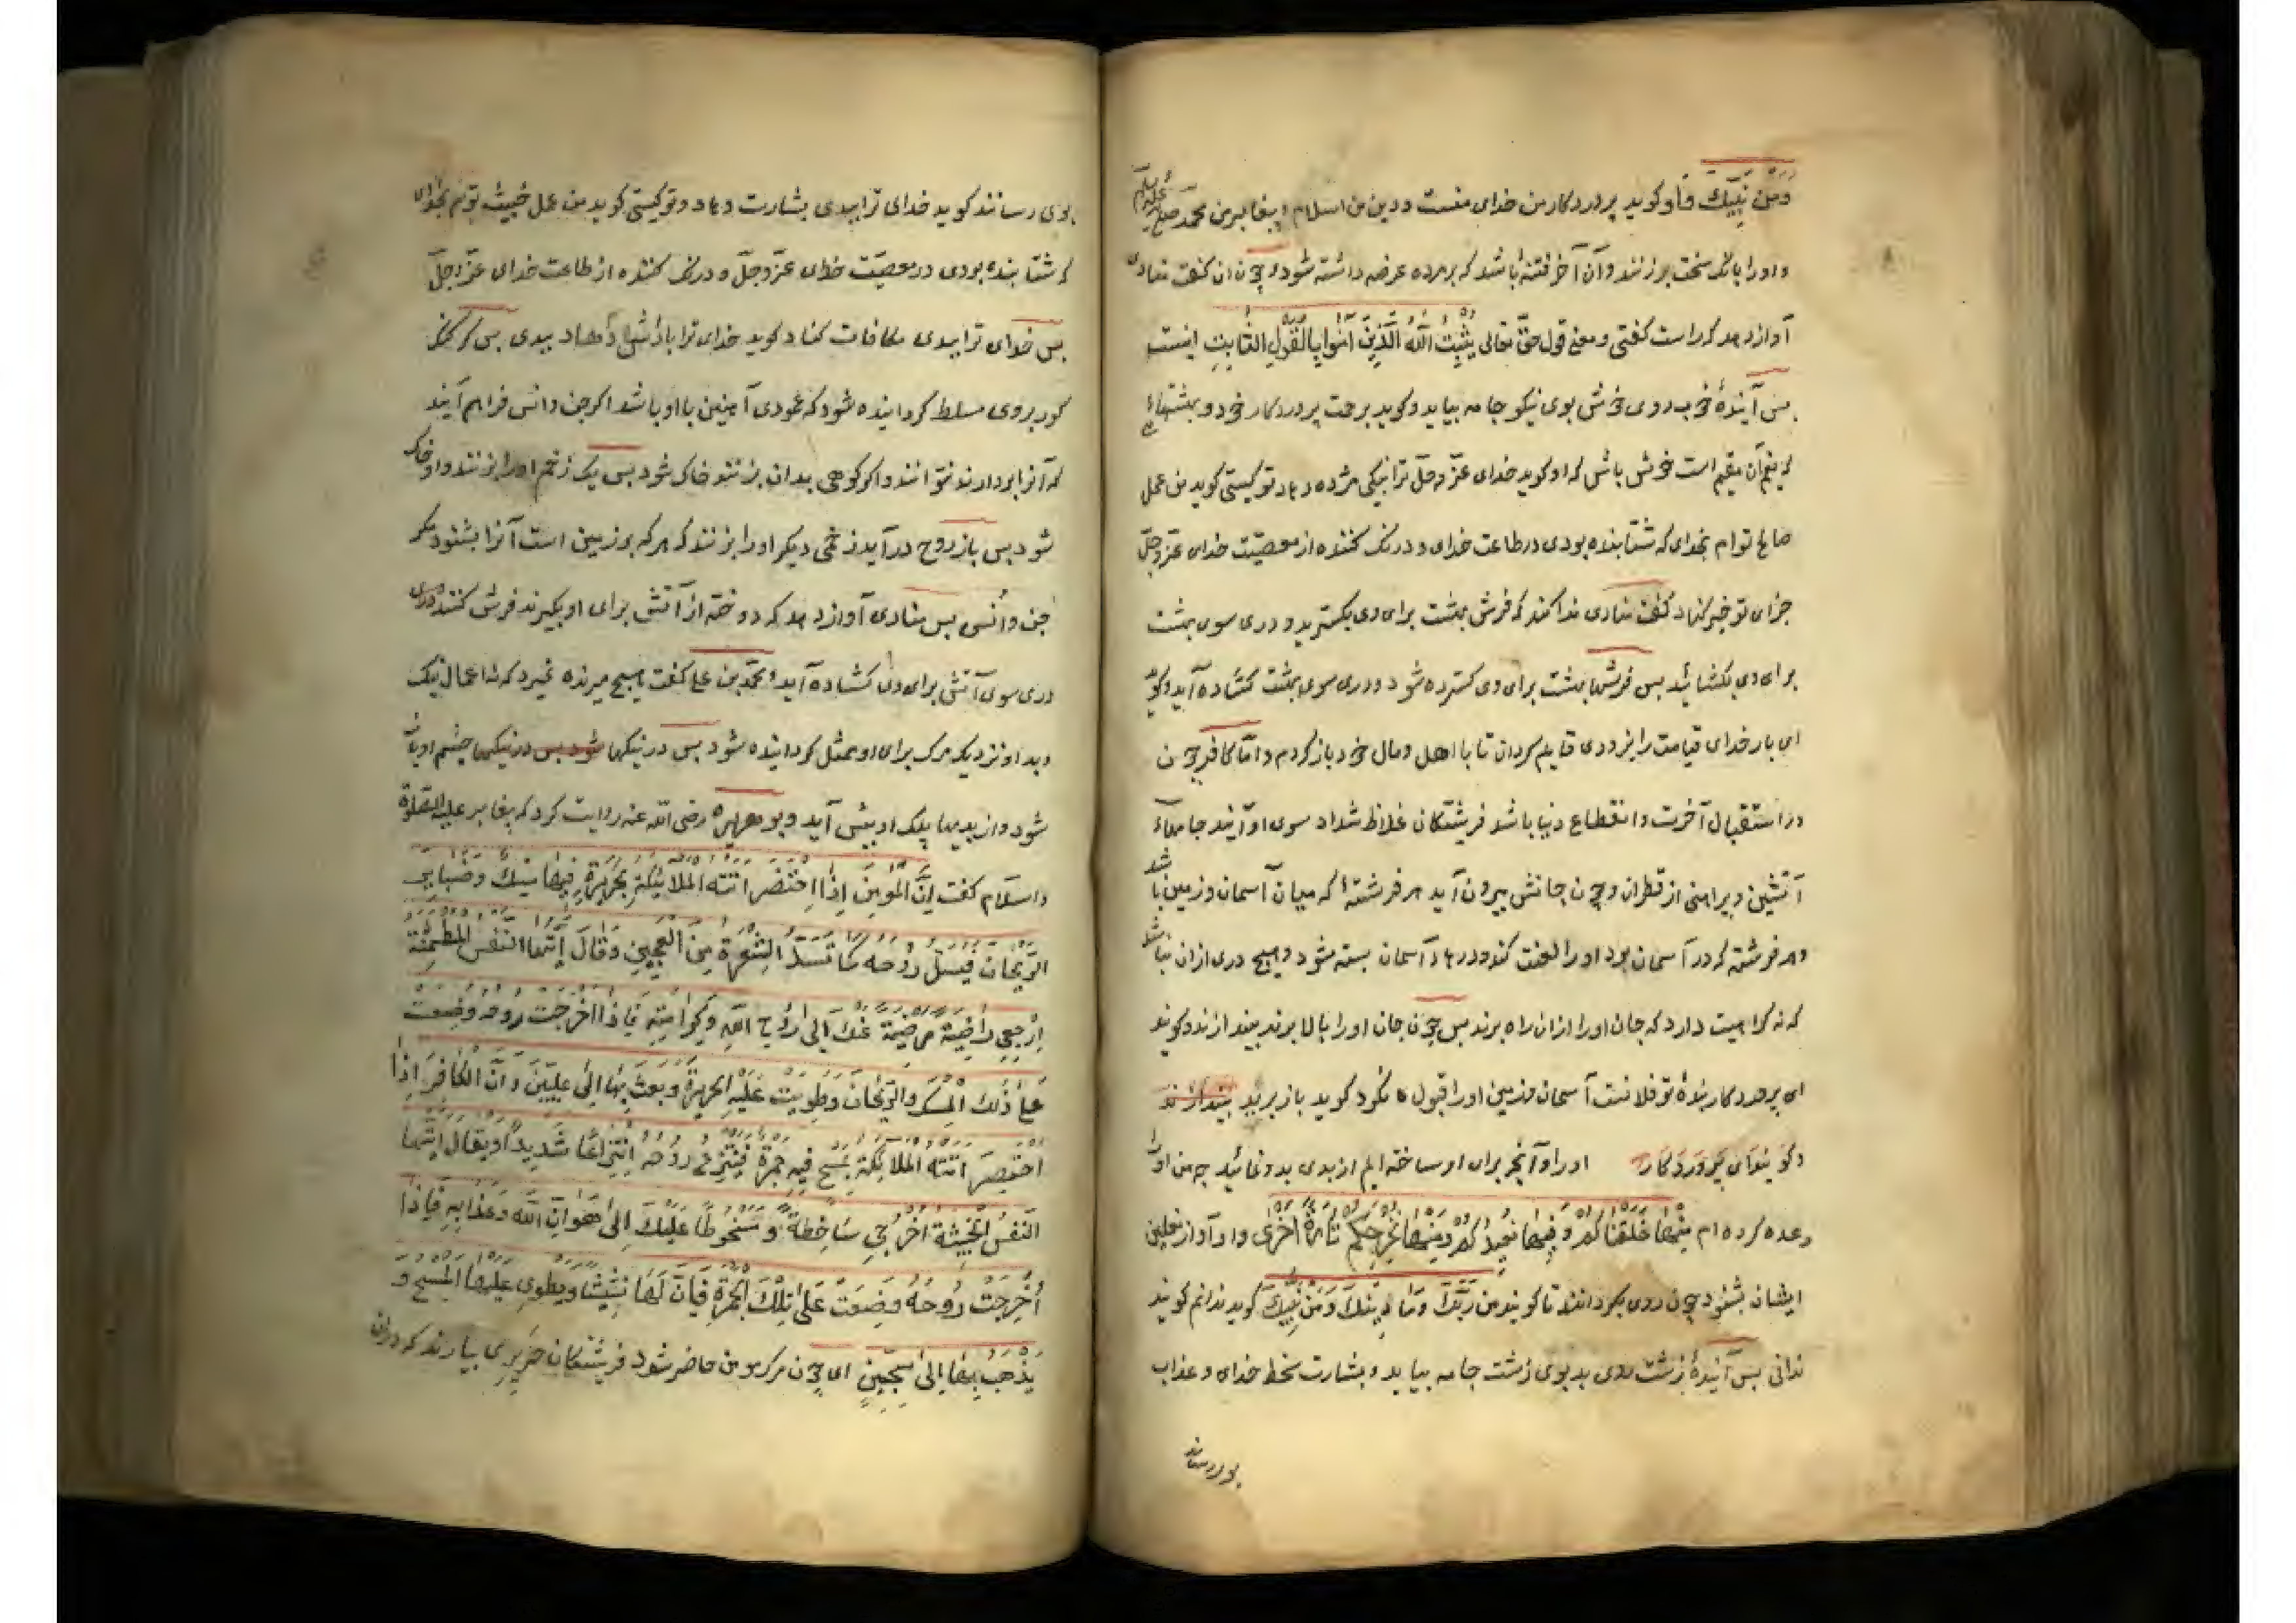 ومن نبیك و او کوید پروردکار من خدای منست و دین من اسلام و پیغامبر من محمد صلعم علیه السلام
و او را بانک سخت برزنند و آن آخر فتنه باشد که بر مرده عرضه داشته شود و چون آن کفت منادی
آواز دهد که راست کفتی و معنی قول حق تعالی یُثَبِّتُ اللّٰهُ الَّذِینَ آمَنُوا بِالْقَوْلِ الثَّابِتِ اینست
پس آیندهٔ خوب روی خوش بوی نیکو جامه بیاید و کوید برحمت پروردکار خود و بهشتهائی
که نعیم آن مقیم است خوش باش که او کوید خدای عزّ و جلّ ترا نیکی مژده دهاد تو کیستی کوید من عمل
صالح توام بخدای که شتابنده بودی در طاعت خدای و درنک کننده از معصیّت خدای عزّ و جلّ
جزای تو خیر کناد کفت منادی ندا کند که فرش بهشت برای وی بکسترید و دری سوی بهشت
برای وی بکشائید پس فرشهاء بهشت برای وی کسترده شود و دری سوی بهشت کشاده آید و کوید
ای بار خدای قیامت را بزودی قایم کردان تا با اهل و مال خود باز کردم و امّا کافر چون
در استقبال آخرت و انقطاع دنیا باشد فرشتکان غلاظ شداد سوی او آیند جامهاء
آتشین و پیراهنی از قطران و چون جانش بیرون آید هر فرشتهٔ که میان آسمان و زمین باشد
و هر فرشته که در آسمان بود او را لعنت کند و درهاء آسمان بسته شود و هیچ دری از آن نباشد
که نه کراهیت دارد که جان او را از آن راه برند پس چون جان او را بالا برند بیندازند و کویند
ای پروردکار بندهٔ تو فلانست آسمان و زمین او را قبول نکرد کوید باز برید بیندازند
و کویند ای پروردکار او را و آنچه برای او ساخته ایم از بدی بدو نمائید چه من او را
وعده کرده ام مِنْهَا خَلَقْنَاکُمْ وَ فِیهَا نُعِیدُکُمْ وَمِنْهَا نُخْرِجُکُمْ تَارَةً اُخْرَی و او آواز نعلین
ایشان بشنود چون روی بکردانند تا کویند من رَبُّکَ وَمَا دِینُکَ وَمَنْ نَبِیُّكَ کوید ندانم کویند
ندانی پس آیندهٔ زشت روی بد بوی زشت جامه بیاید و بشارت سخط خدای و عذاب
بوی رساند
بوی رسانند کوید خدای ترا ببدی بشارت دهاد و تو کیستی کوید من عمل خبیث توام بخدای
که شتابنده بودی در معصیّت خدای عزّ و جلّ و درنک کننده از طاعت خدای عزّ و جلّ
پس خدای ترا ببدی مکافات کناد کوید خدای ترا پاداش دهاد ببدی پس کر کنک
کور بروی مسلط کردانیده شود که عمودی آهنین با او باشد اکر جن و انس فراهم آیند
که آنرا بردارند نتوانند و اکر کوهی بدان بزنند خاک شود پس یک زخم او را بزنند و او خاک
شود پس باز روح درآید زخمی دیکر او را بزنند که هر که بر زمین است آنرا بشنود مکر
جن و اُنس پس منادی آواز دهد که دو تخته از آتش برای او بکیرند فرش کنند و دری
دری سوی آتش برای وی کشاده آید و محمّد بن علی کفت هیچ میرنده نمیرد که نه اعمال نیک
و بد او نزدیک مرک برای او ممثّل کردانیده شود پس در نیکیها شود پس در نیکیها چشم او باز
شود و از بدیها پلک او پیش آید و بو هریره رضی اللّه عنه روایت کرد که پیغامبر علیه الصّلوة
والسّلام کفت اِنَّ الْمُؤمِنَ اِذَا احْتُضِرَ اَتَتْهُ الْمَلائِکَةُ بِحَرِیرَةٍ فِیهَا مِسْكٌ وَضَبَایِرُ
الرَّیْحَانِ فَیُسَلُّ رُوحُهُ کَمَا تُسَلُّ الشَّعْرَةُ مِنَ الْعَجِینِ وَیُقَالُ اَیَّتُهَا النَّفْسُ الْمُطْمَئِنَّة
اِرْجِعِی رَاضِیَةً مَرْضِیَّةً عَنْكَ اِلَی رَوْحِ اللّٰهِ وَکَرَامَتِهِ فَاِذَا اُخْرِجَتْ رُوحُهُ وُضِعَتْ
عَلَی ذَلِكَ الْمِسْكِ وَالرَّیْحَانِ وَطُوِیَتْ عَلَیْهِ الْحَرِیرَةُ وَبُعِثَ بِهَا اِلَی عِلِّیِّینَ وَاِنَّ الْکَافِرَ اِذَا
احْتُضِرَ اَتَتْهُ الْمَلائِکَةُ بِمِسْحٍ فِیهِ جَمْرَةٌ فَیُنْتَزَعُ رُوحُهُ اِنْتِزَاعًا شَدِیدًا وَیُقَالُ اَیَّتُهَا
النَّفْسُ الْخَبِیثَةُ اُخْرُجِی سَاخِطَةً وَ مَسْخُوطًا عَلَیْكَ اِلَی هَوَانِ اللّٰهِ وَعَذَابِهِ فَاِذَا
اُخْرِجَتْ رُوحُهُ وُضِعَتْ عَلَی تِلْكَ الْجَمْرَةِ فَاِنَّ لَهَا نَشِیشًا وَیُطْوَی عَلَیْهَا الْمِسْحُ وَ
یُذْهَبُ بِهَا اِلَی سِجِّینٍ ای چون مرک مومن حاضر شود فرشتکان حریری بیارند که در آن